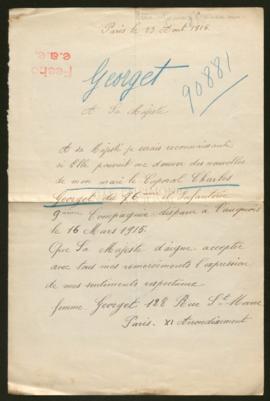 Paris le 23 Aout 1916.
Fecho
e.a.e.
Georget
90881
A Sa Majesté
A sa Majesté je serais reconnaissante
si Elle pouvait me donner des nouvelles
de mon mari le Caporal Charles
Georget du 76ème d'Infanterie
9ème Compagnie disparu a Vauquois
le 16 Mars 1915.
Que Sa Majesté daigne accepter
avec tous mes remerciements l'expression
de mes sentiments respectueux
femme Georget 128 Rue St Maur
Paris. XI Arrondissement